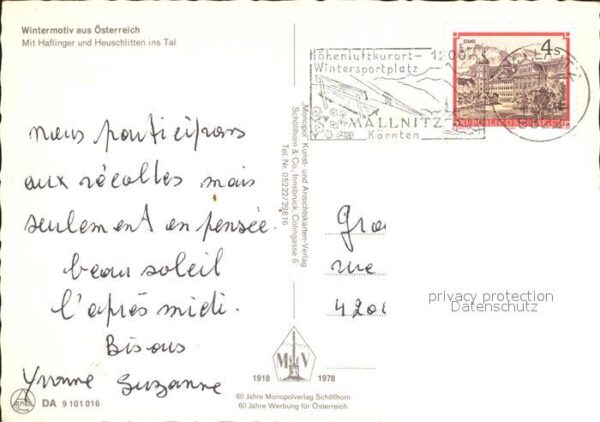 Wintermotiv aus Österreich
Mit Haflinger und Heuschlitten ins Tal
nous participons
aux récoltes mais
seulement en pensée.
beau soleil
l'après midi.
Bisous
Yvonne Suzanne
DA 9 101 016
Monopol Kunst- und Ansichtskarten-Verlag
Schöllhorn & Co, Innsbruck, Colingasse 6
Tel. Nr. 05222/29816
MV
1918 1978
60 Jahre Monopolverlag Schöllhorn
60 Jahre Werbung für Österreich
Höhenluftkurort-
Wintersportplatz
MALLNITZ
Kärnten
STAMS
4s
REPUBLIK ÖSTERREICH
rue
privacy protection
Datenschutz